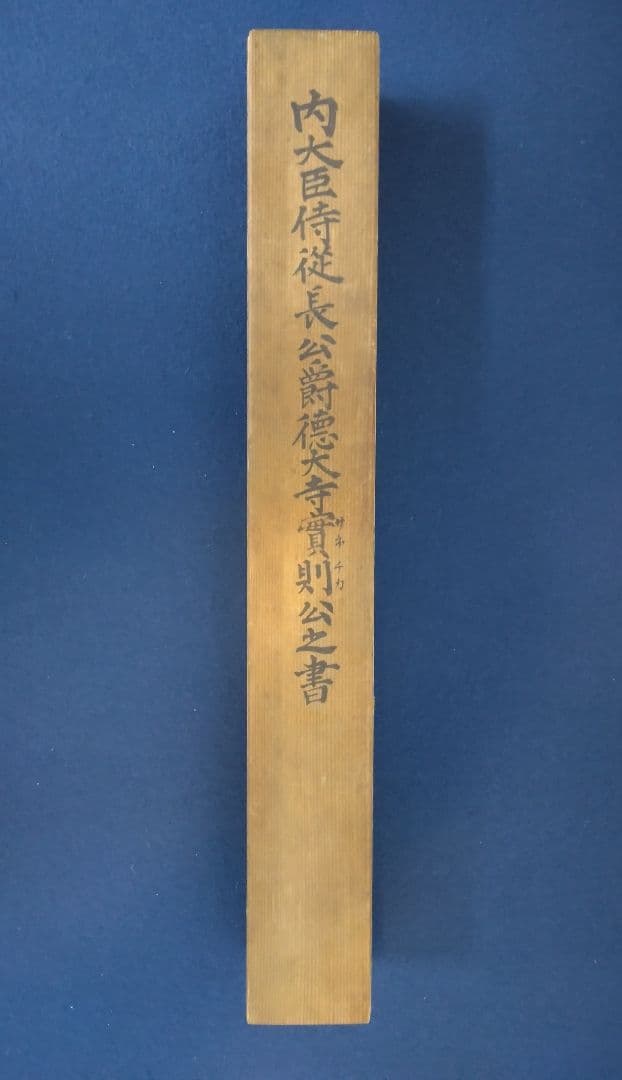 内大臣侍從長公爵德大寺實則公之書
サネチカ